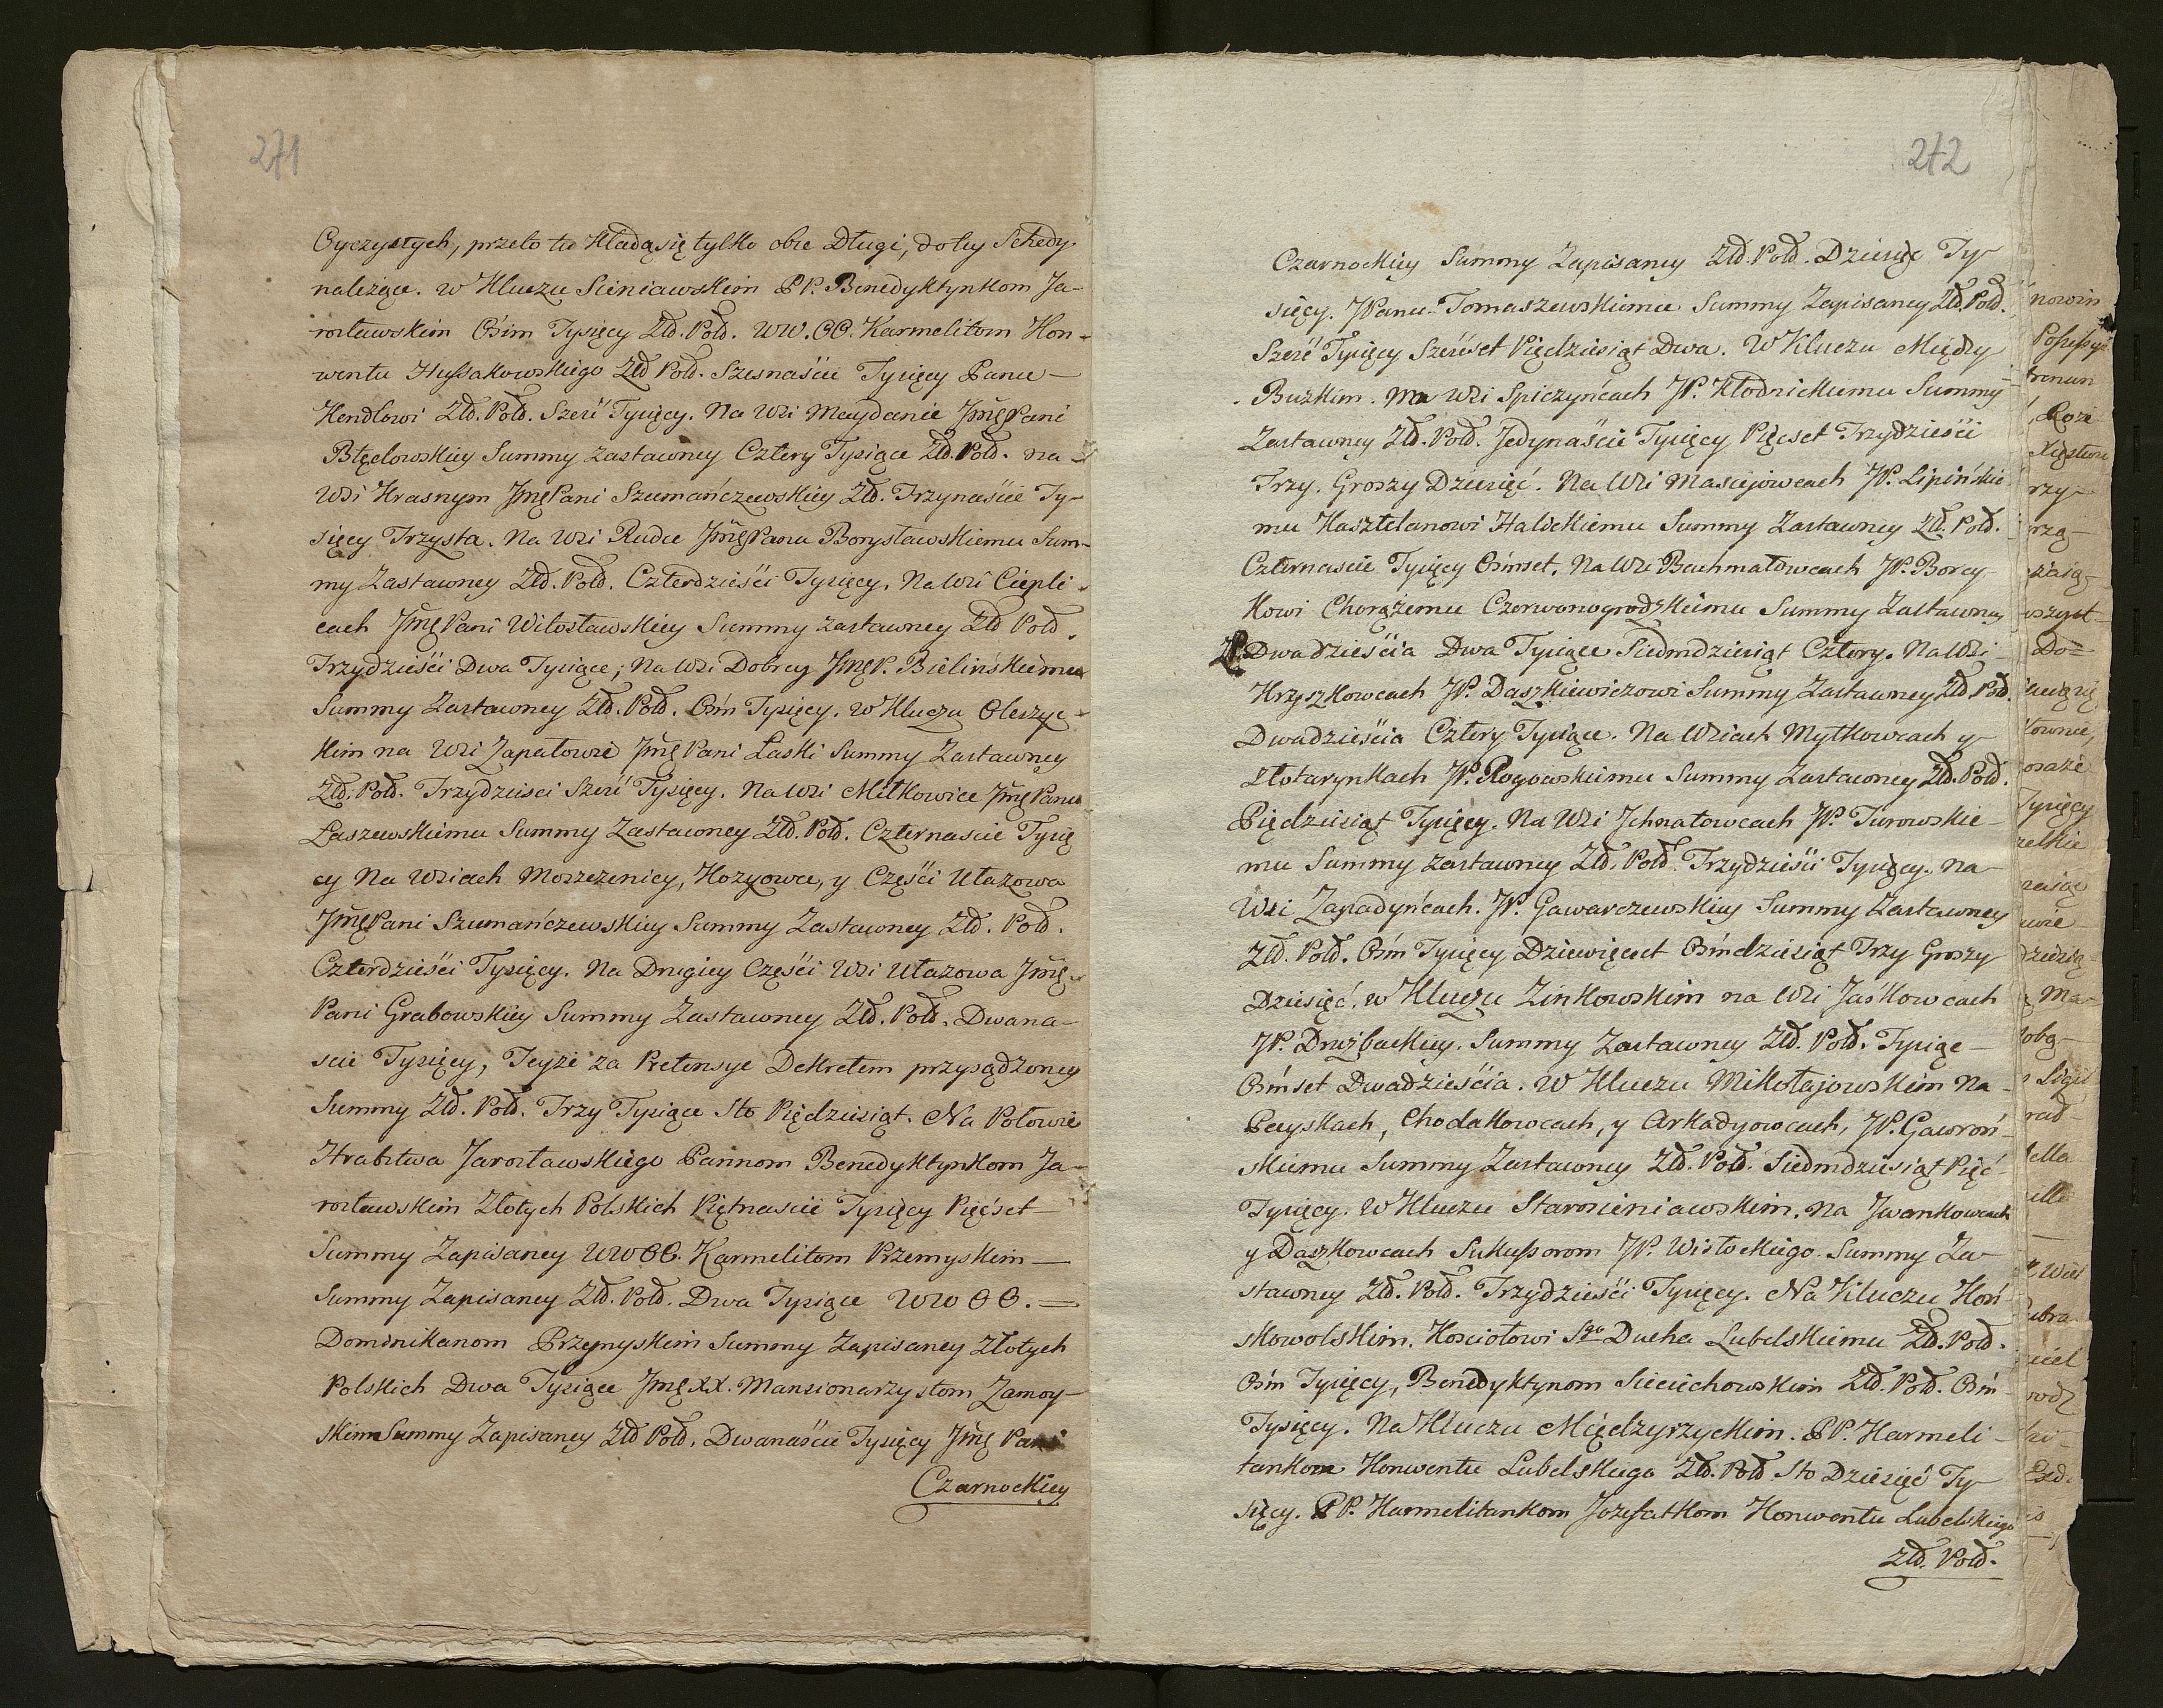 271
Oyczystych, przeto tu kładą się tylko obie Długi, do tey Schedy
należące. w Kluczu Sieniawskim PP. Benedyktynkom Ja-
rosławskim Ośm Tysięcy Zł. Pol. WW. OO. Karmelitom Kon-
wentu Hussakowskiego Zł Pol. Szesnaście Tysięcy Panu
Hendlowi Zł. Pol. Sześć Tysięcy. Na Wsi Maydanie Jmę Pani
Błędowskiey Summy Zastawney Cztery Tysiące Zł. Pol. na
Wsi Krasnym Jmę Pani Szumańczewskiey Zł. Trzynaście Ty-
sięcy Trzysta. Na Wsi Rudce Jmę Panu Borysławskiemu Sum-
my Zastawney Zł. Pol. Czterdzieści Tysięcy. Na Wsi Ciepli-
cach Jmę Pani Witosławskiey Summy zastawney Zł Pol.
Trzydzieści Dwa Tysiące; Na Wsi Dobrey Jmę P. Bielińskiemu
Summy Zastawney Zł. Pol. Ośm Tysięcy. w Kluczu Oleszyc-
kim na Wsi Zapałowie Jmę Pani Laski Summy Zastawney
Zł. Pol. Trzydzieści Sześć Tysięcy. Na Wsi Miłkowice Jmę Panu
Laszewskiemu Summy Zastawney Zł. Pol. Czternaście Tysię
cy Na Wsiach Moszczenicy, Kozyowce, y Części Ułazowa
Jmę Pani Szumańczewskiey Summy Zastawney Zł. Pol.
Czterdzieści Tysięcy. Na Drugiey Części Wsi Ułazowa Jmę
Pani Grabowskiey Summy Zastawney Zł. Pol. Dwana-
scie Tysięcy, Teyże za Pretensye Dekretem przysądzoney
Summy Zł. Pol. Trzy Tysiące Sto Piędziesiąt. Na Połowie
Hrabstwa Jarosławskiego Pannom Benedyktynkom Ja-
rosławskim Złotych Polskich Piętnascie Tysięcy Pięćset
Summy Zapisaney WW OO. Karmelitom Przemyskim
Summy Zapisaney Zł. Pol. Dwa Tysiące WW OO.
Dominikanom Przemyskim Summy Zapisaney Złotych
Polskich Dwa Tysiące Jmę XX. Mansionarzystom Zamoy-
skim Summy Zapisaney Zł Pol. Dwanaście Tysięcy Jmę Pani
Czarnockiey
272
Czarnockiey Summy Zapisaney Zł. Pol. Dziesięć Ty-
sięcy. JPanu Tomaszewskiemu Summy Zapisaney Zł Pol.
Sześć Tysięcy Sześćset Piędziesiąt Dwa. W Kluczu Między
Buzkim. na Wsi Spiczyńcach JP. Kłodnickiemu Summy
Zastawney Zł. Pol. Jedynaście Tysięcy Pięcset Trzydzieści
Trzy. Groszy Dziesięć. Na Wsi Maściejowcach JP. Lipińskie
mu Kasztelanowi Halickiemu Summy Zastawney Zł. Pol.
Czternascie Tysięcy Ośmset. Na Wsi Bachmatowcach JP. Borey-
kowi Chorążemu Czerwonogrodzkiemu Summy Zastawney
Zł. Dwadzieścia Dwa Tysiące Siedmdziesiąt Cztery. Na Wsi
Hryszkowcach JP. Daszkiewiczowi Summy Zastawney Zł Pol.
Dwadzieścia Cztery Tysiące. Na Wsiach Mytkowcach y
Złotarynkach JP. Rogowskiemu Summy Zastawney Zł. Pol.
Piędziesiąt Tysięcy. Na Wsi Jchnatowcach JP. Turowskie-
mu Summy zastawney Zł. Pol. Trzydzieści Tysięcy. Na
Wsi Zapadyńcach. JP. Gawarczewskiey Summy Zastawney
Zł. Pol. Ośm Tysięcy Dziewięcset Ośmdziesiąt Trzy Groszy
Dziesięć. w Kluczu Zinkowskim na Wsi Jaśkowcach
JP. Drużbackiey. Summy Zastawney Zł. Pol. Tysiąc
Ośmset Dwadzieścia. W Kluczu Mikołajowskim Na
Pecyskach, Chodakowcach, y Arkadyowcach, JP. Gawroń-
skiemu Summy Zastawney Zł. Pol. Siedmdziesiąt Pięć
Tysięcy. W Kluczu Starosieniawskim. Na Jwankowcach
y Daszkowcach Sukussorom JP. Wisłockiego. Summy Za
stawney Zł. Pol. Trzydzieści Tysięcy. Na Kluczu Koń
skowolskim. Kościołowi Sgo Ducha Lubelskiemu Zł. Pol.
Ośm Tysięcy, Benedyktynom Sieciechowskim Zł. Pol. Ośm
Tysięcy. Na Kluczu Międzyrzyckim. PP. Karmeli-
tankom Konwentu Lubelskiego Zł. Pol Sto Dziesięć Ty-
sięcy. PP. Karmelitankom Jozefatkom Konwentu Lubelskiego
Zł. Pol.